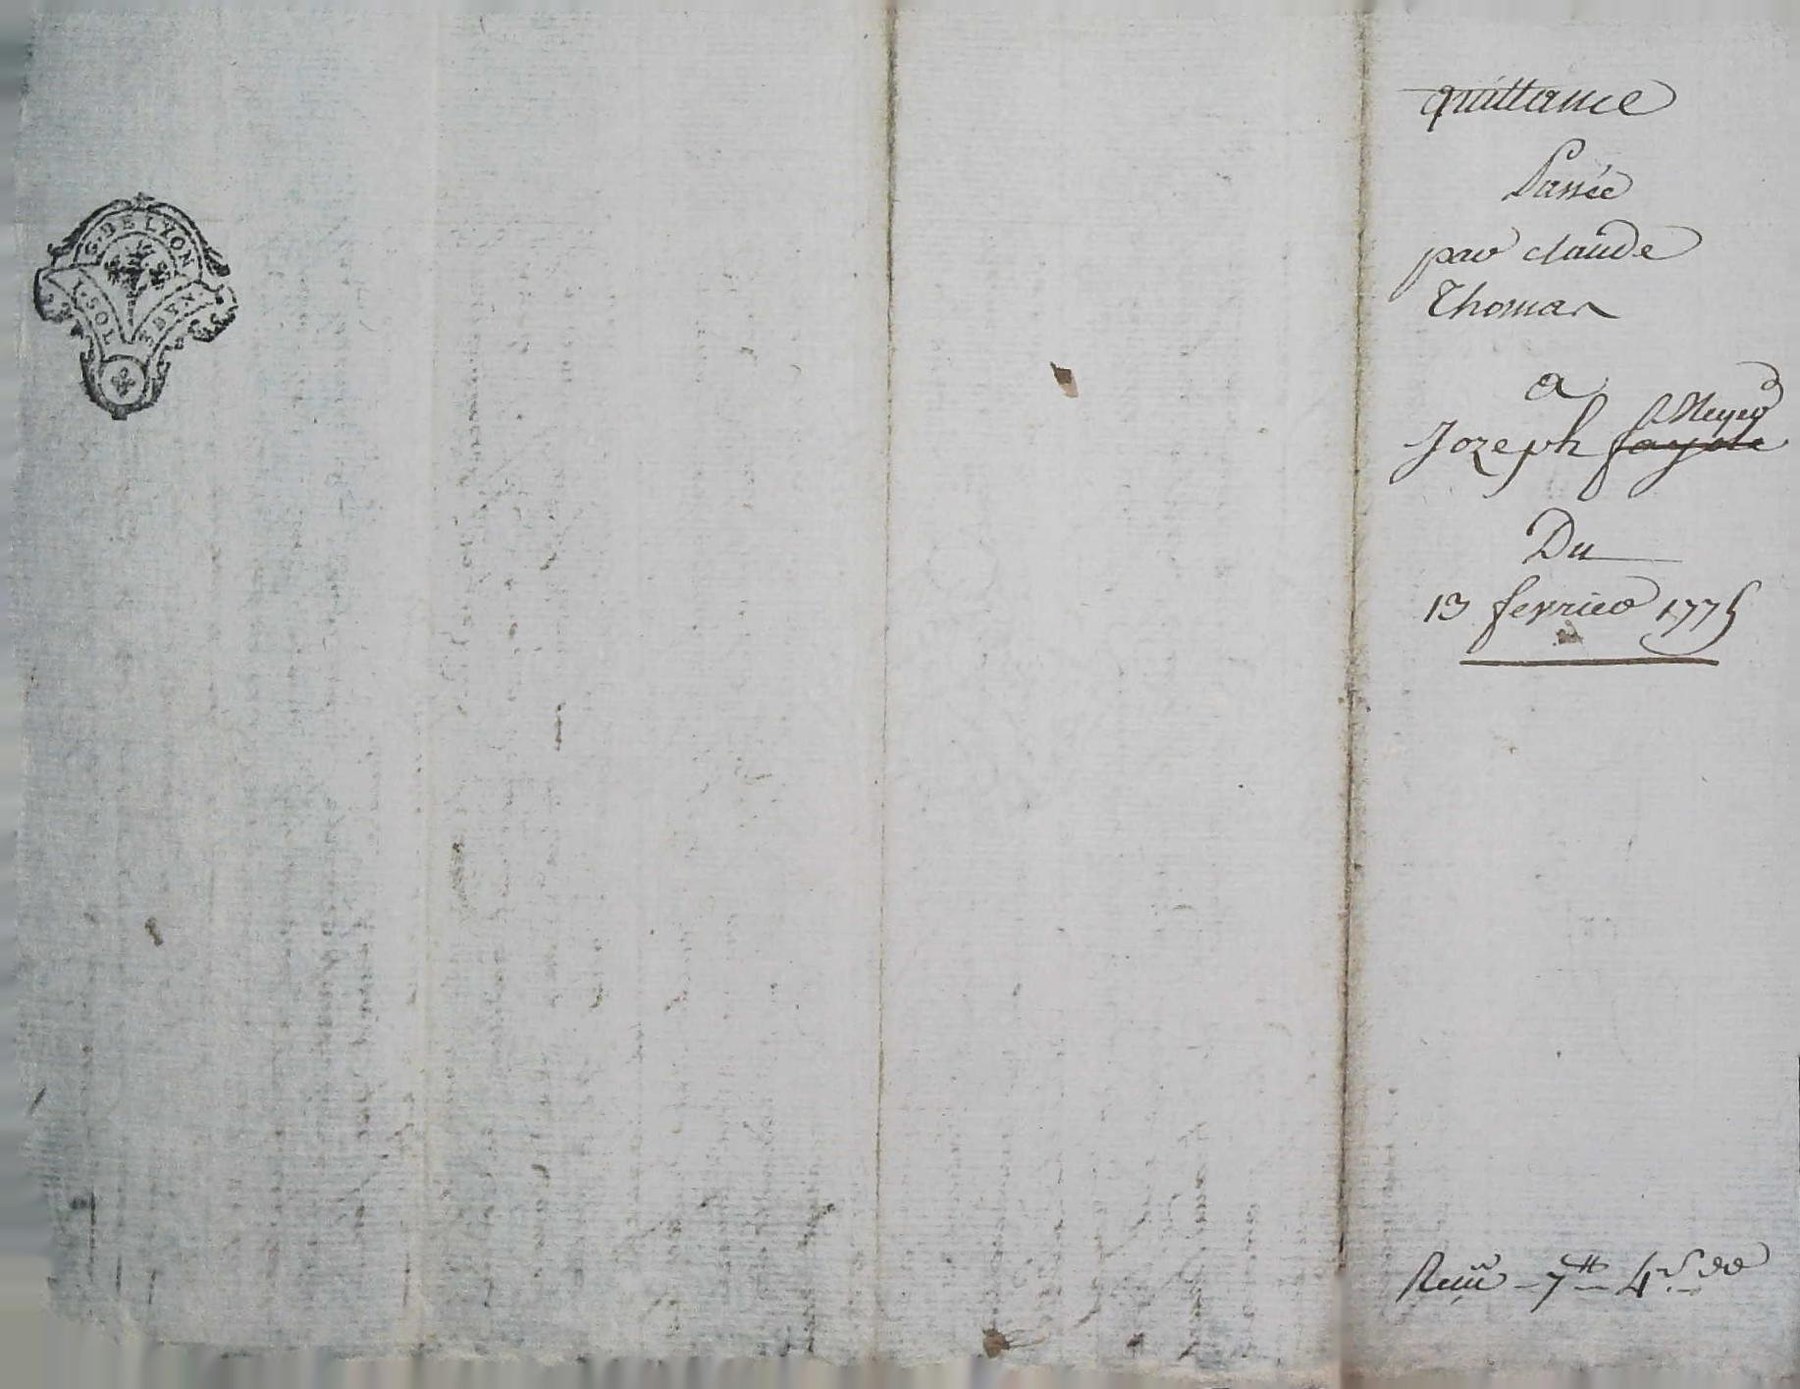 G. DE LYON
1. SOL 
DEN
quittance
Passée
par claude
Thomas
a
Neyer
Jozeph fayole
Du
13 fevrier 1775
Recu - 7# 4s